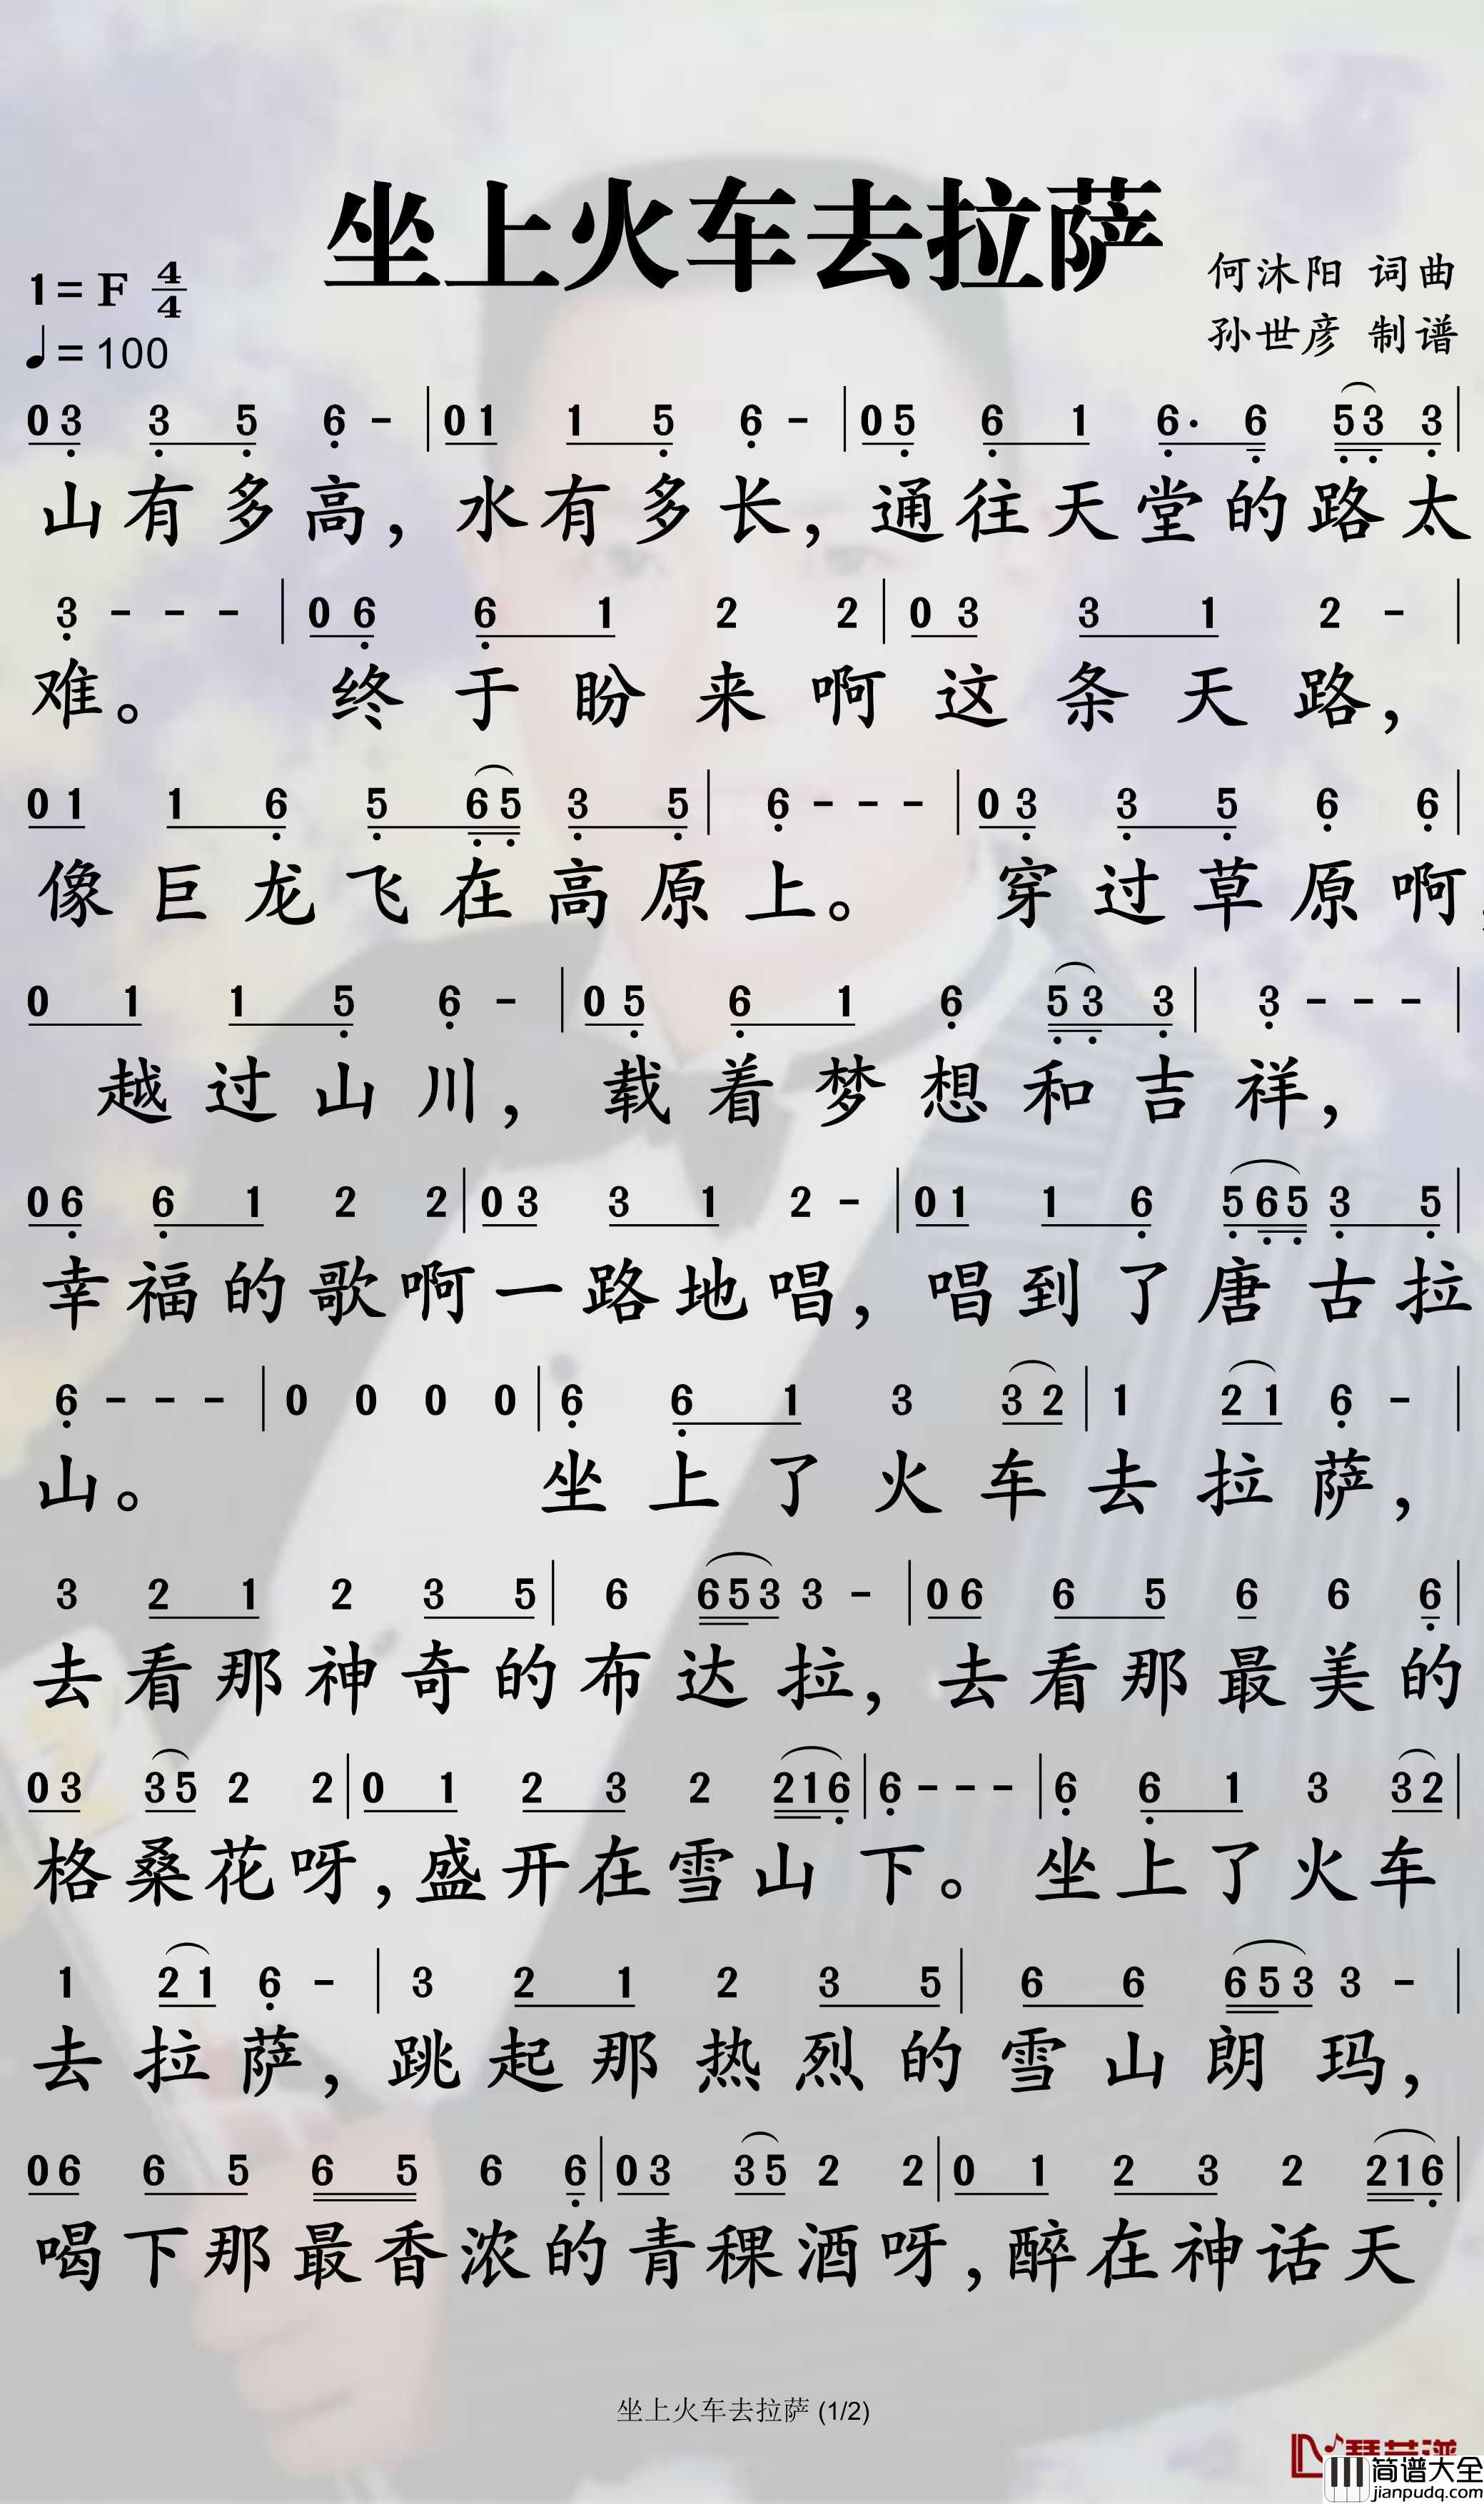 坐上火车去拉萨
1=F 4/4
何沐阳 词曲
♩=100
孙世彦 制谱
03 3 5 6 - | 01 1 5 6 - | 05 6 1 6· 6 53 3 |
山有多高，水有多长，通往天堂的路太
3 - - - | 06 6 1 2 2 | 03 3 1 2 - |
难。 终于盼来啊这条天路，
01 1 6 5 65 3 5 | 6 - - - | 03 3 5 6 6 |
像巨龙飞在高原上。 穿过草原啊，
0 1 1 5 6 - | 05 6 1 6 53 3 | 3 - - - |
越过山川，载着梦想和吉祥，
06 6 1 2 2 | 03 3 1 2 - | 01 1 6 565 3 5 |
幸福的歌啊一路地唱，唱到了唐古拉
6 - - - | 0 0 0 0 | 6 6 1 3 32 | 1 21 6 - |
山。 坐上了火车去拉萨，
3 2 1 2 3 5 | 6 653 3 - | 06 6 5 6 6 6 |
去看那神奇的布达拉，去看那最美的
03 35 2 2 | 0 1 2 3 2 216 | 6 - - - | 6 6 1 3 32 |
格桑花呀，盛开在雪山下。坐上了火车
1 21 6 - | 3 2 1 2 3 5 | 6 6 653 3 - |
去拉萨，跳起那热烈的雪山朗玛，
06 6 5 6 5 6 6 | 03 35 2 2 | 0 1 2 3 2 216 |
喝下那最香浓的青稞酒呀，醉在神话天
坐上火车去拉萨 (1/2)
简谱大全
jianpudq.com